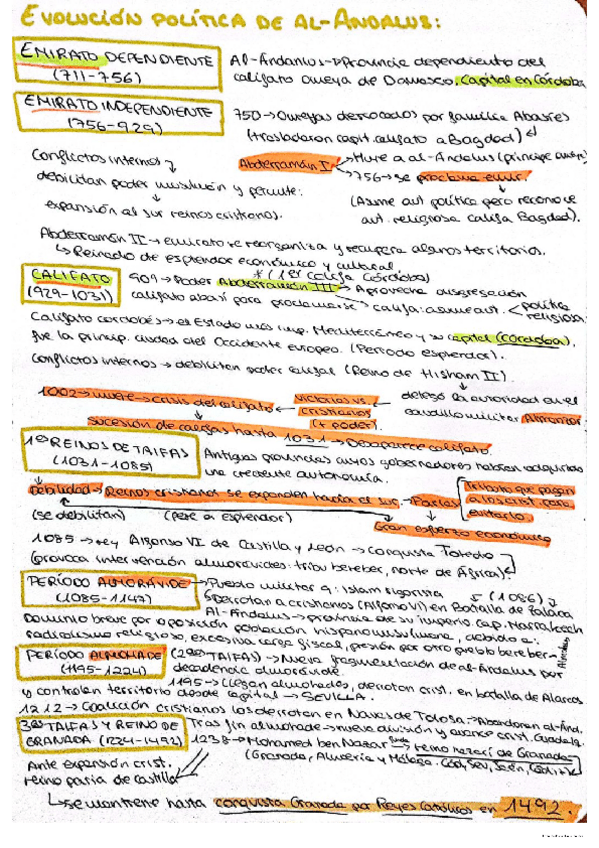 EVOLUCIÓN POLÍTICA DE AL-ANDALUS:
EMIRATO DEPENDIENTE
(711-756)
Al-Andalus → Provincia dependiente del
califato omeya de Damasco. Capital en Córdoba
EMIRATO INDEPENDIENTE
(756-929)
750 → Omeyas derrocados por familia Abasíes
(trasladaron capit. califato a Bagdad)
Conflictos internos
debilitan poder musulmán y permite:
expansión al sur reinos cristianos.
Abderramán I → Huye a al-Andalus (príncipe omeya)
756 → se proclama emir.
(Asume aut. política pero reconoce
aut. religiosa califa Bagdad).
Abderramán II → emirato se reorganiza y recupera algunos territorios.
↳ Reinado de esplendor económico y cultural
CALIFATO
(929-1031)
* (1er califa Córdoba)
909 → Poder Abderramán III → Aprovecha disgregación
califato abasí para proclamarse califa: asume aut. política
religiosa
Califato cordobés → el Estado más imp. Mediterráneo y su capital (Córdoba),
fue la princip. ciudad del Occidente europeo. (Período esplendor).
Conflictos internos → debilitan poder califal (Reino de Hisham II).
delegó la autoridad en el
caudillo militar Almanzor
1002 → muere → crisis del califato ← victorias vs.
cristianos
(+ poder).
sucesión de califas hasta 1031 → Desaparece califato.
1os REINOS DE TAIFAS
(1031-1085)
Antiguas provincias cuyos gobernadores habían adquirido
una creciente autonomía.
Debilidad → Reinos cristianos se expanden hacia el sur → Parias
Tributo que pagan
a los crist. para
evitarlo.
(se debilitan) (pese a esplendor)
Gran esfuerzo económico
1085 → rey Alfonso VI de Castilla y León → conquista Toledo
(provoca intervención almorávides: tribu bereber, norte de África).
PERÍODO ALMORÁVIDE
(1085-1147)
→ Pueblo militar q: Islam rigorista
↳ Derrotan a cristianos (Alfonso VI) en Batalla de Zalaca (1086)
Al-Andalus → provincia de su imperio. Cap. Marrakech
Dominio breve por oposición población hispanomusulmana, debido a:
radicalismo religioso, excesiva carga fiscal, presión por otro pueblo bereber → Almohades
PERÍODO ALMOHADE
(1195-1224)
(2as TAIFAS) → Nueva fragmentación de al-Ándalus por
decadencia almorávide.
1195 → Llegan almohades, derrotan crist. en batalla de Alarcos
y controlan territorio desde capital → SEVILLA.
1212 → Coalición cristianos los derrotan en Navas de Tolosa → Abandonan al-Ánd.
3as TAIFAS Y REINO DE
GRANADA (1224-1492)
Tras fin almohade → nueva división y avance crist. Guadalq.
1238 → Mohamed ben Nazar funda → reino nazarí de Granada
(Granada, Almería y Málaga. Cór, Sev, Jaén, Cádiz
Ante expansión crist.
reino paria de castilla
↳ se mantiene hasta conquista Granada por Reyes Católicos en 1492.